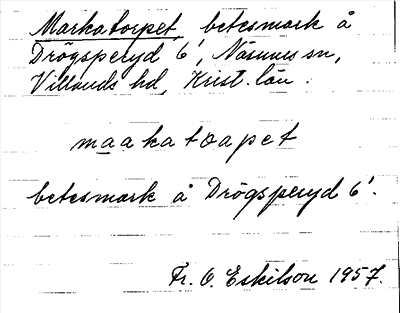 Markatorpet, betesmark å
Drögsperyd 6¹, Näsums sn,
Villands hd, Krist. län.
maakatoapet
betesmark å Drögsperyd 6¹.
Fr. O. Eskilson 1957.